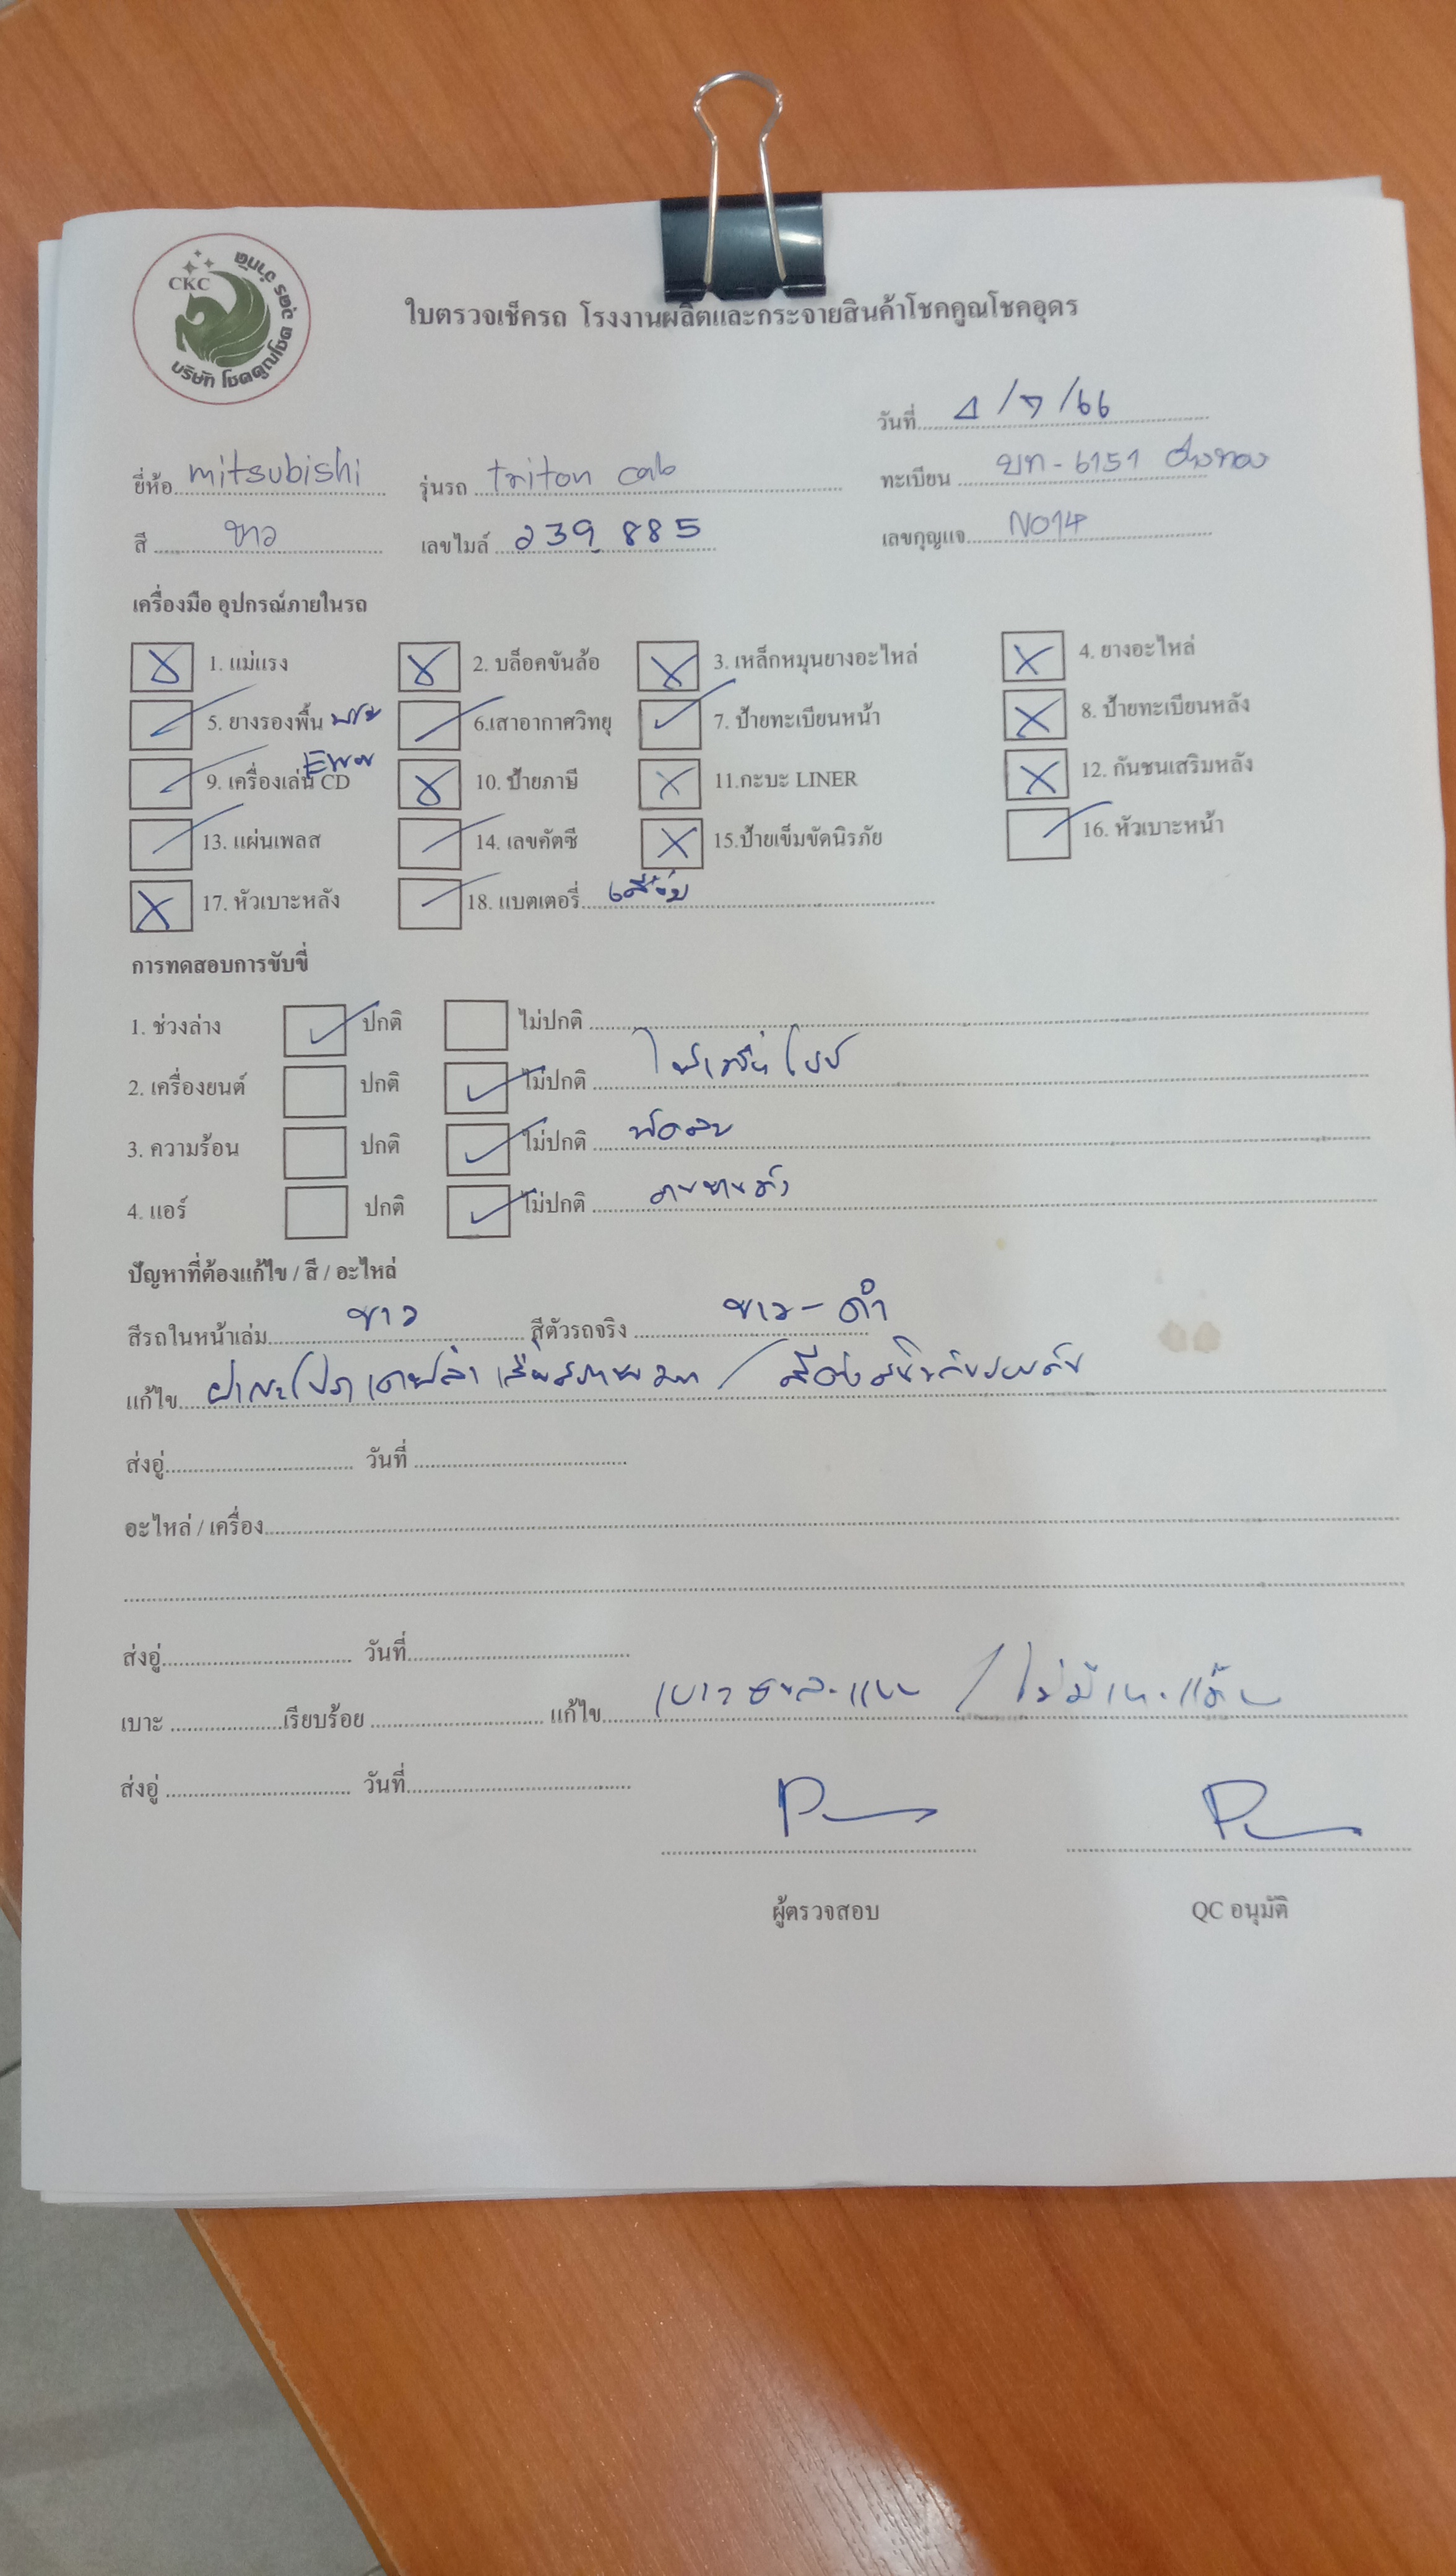 CKC
บริษัท โชคคูณโชค อุดร จำกัด
ใบตรวจเช็ครถ โรงงานผลิตและกระจายสินค้าโชคคูณโชคอุดร
วันที่ 4/7/66
ยี่ห้อ mitsubishi รุ่นรถ triton cab ทะเบียน บท-6151 อ่างทอง
สี ขาว เลขไมล์ 239,885 เลขกุญแจ NO14
เครื่องมือ อุปกรณ์ภายในรถ
1. แม่แรง 2. บล็อคขันล้อ 3. เหล็กหมุนยางอะไหล่ 4. ยางอะไหล่
5. ยางรองพื้น พรม 6.เสาอากาศวิทยุ 7. ป้ายทะเบียนหน้า 8. ป้ายทะเบียนหลัง
9. เครื่องเล่น CD 10. ป้ายภาษี 11.กะบะ LINER 12. กันชนเสริมหลัง
13. แผ่นเพลส 14. เลขคัตซี 15.ป้ายเข็มขัดนิรภัย 16. หัวเบาะหน้า
17. หัวเบาะหลัง 18. แบตเตอรี่ เสื่อม
การทดสอบการขับขี่
1. ช่วงล่าง ปกติ ไม่ปกติ
2. เครื่องยนต์ ปกติ ไม่ปกติ ไฟเครื่องโชว์
3. ความร้อน ปกติ ไม่ปกติ
4. แอร์ ปกติ ไม่ปกติ
ปัญหาที่ต้องแก้ไข / สี / อะไหล่
สีรถในหน้าเล่ม ขาว สีตัวรถจริง ขาว-ดำ
แก้ไข
ส่งอู่ วันที่
อะไหล่ / เครื่อง
ส่งอู่ วันที่
เบาะ เรียบร้อย แก้ไข
ส่งอู่ วันที่
ผู้ตรวจสอบ QC อนุมัติ